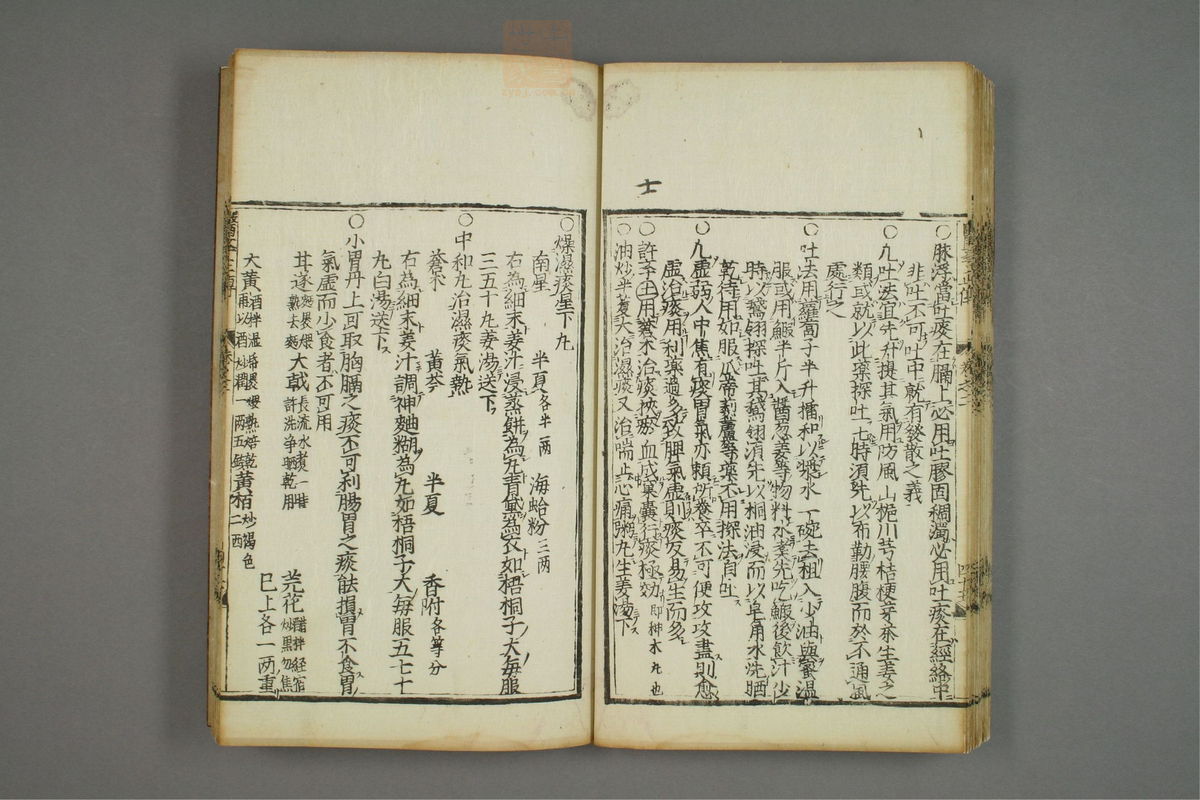 士
○脉浮當吐痰在膈上必用吐膠固稠濁必用吐痰在經絡中
非吐不可吐中就有發散之義
○凡吐法宜先升提其氣用防風山梔川芎桔梗芽茶生姜之
類或就以此藥探吐吐時須先以布勒腰腹而於不通風
處行之
○吐法用蘿蔔子半升擂和以漿水一碗去柤入少油與蜜温
服或用鰕半斤入醬葱姜等物料水煮先吃鰕後飲汁少
時以鵝翎探吐其鵝翎須先以桐油浸而以皂角水洗晒
乾待用如服瓜蒂藜蘆等藥不用探法自吐
○凡虚弱人中焦有痰胃氣亦頼所養卒不可便攻攻盡則愈
虚治痰用利藥過多致脾氣虚則痰反易生而多
○許學士用蒼朮治痰挾瘀血成窠囊行痰極効即神朮丸也
○油炒半夏大治濕痰又治喘止心痛粥丸生姜湯下
○燥濕痰星下丸
南星 半夏各半一两 海蛤粉三两
右為細末姜汁浸蒸餅為丸青黛為衣如梧桐子大毎服
三五十丸姜湯送下
○中和丸治濕痰氣熱
蒼朮 黄芩 半夏 香附各等分
右為細末姜汁調神麯糊為丸如梧桐子大毎服五七十
丸白湯送下
○小胃丹上可取胸膈之痰下可利腸胃之痰能損胃不食胃
氣虚而少食者不可用
甘遂麫裹煨熟去麫 大戟長流水煮一時許洗净晒乾用 芫花醋拌経宿炒黒勿焦
大黄酒拌温紙裹煨熟焙乾再以酒炒潤一两五錢 黄栢二两炒褐色 已上各一两重